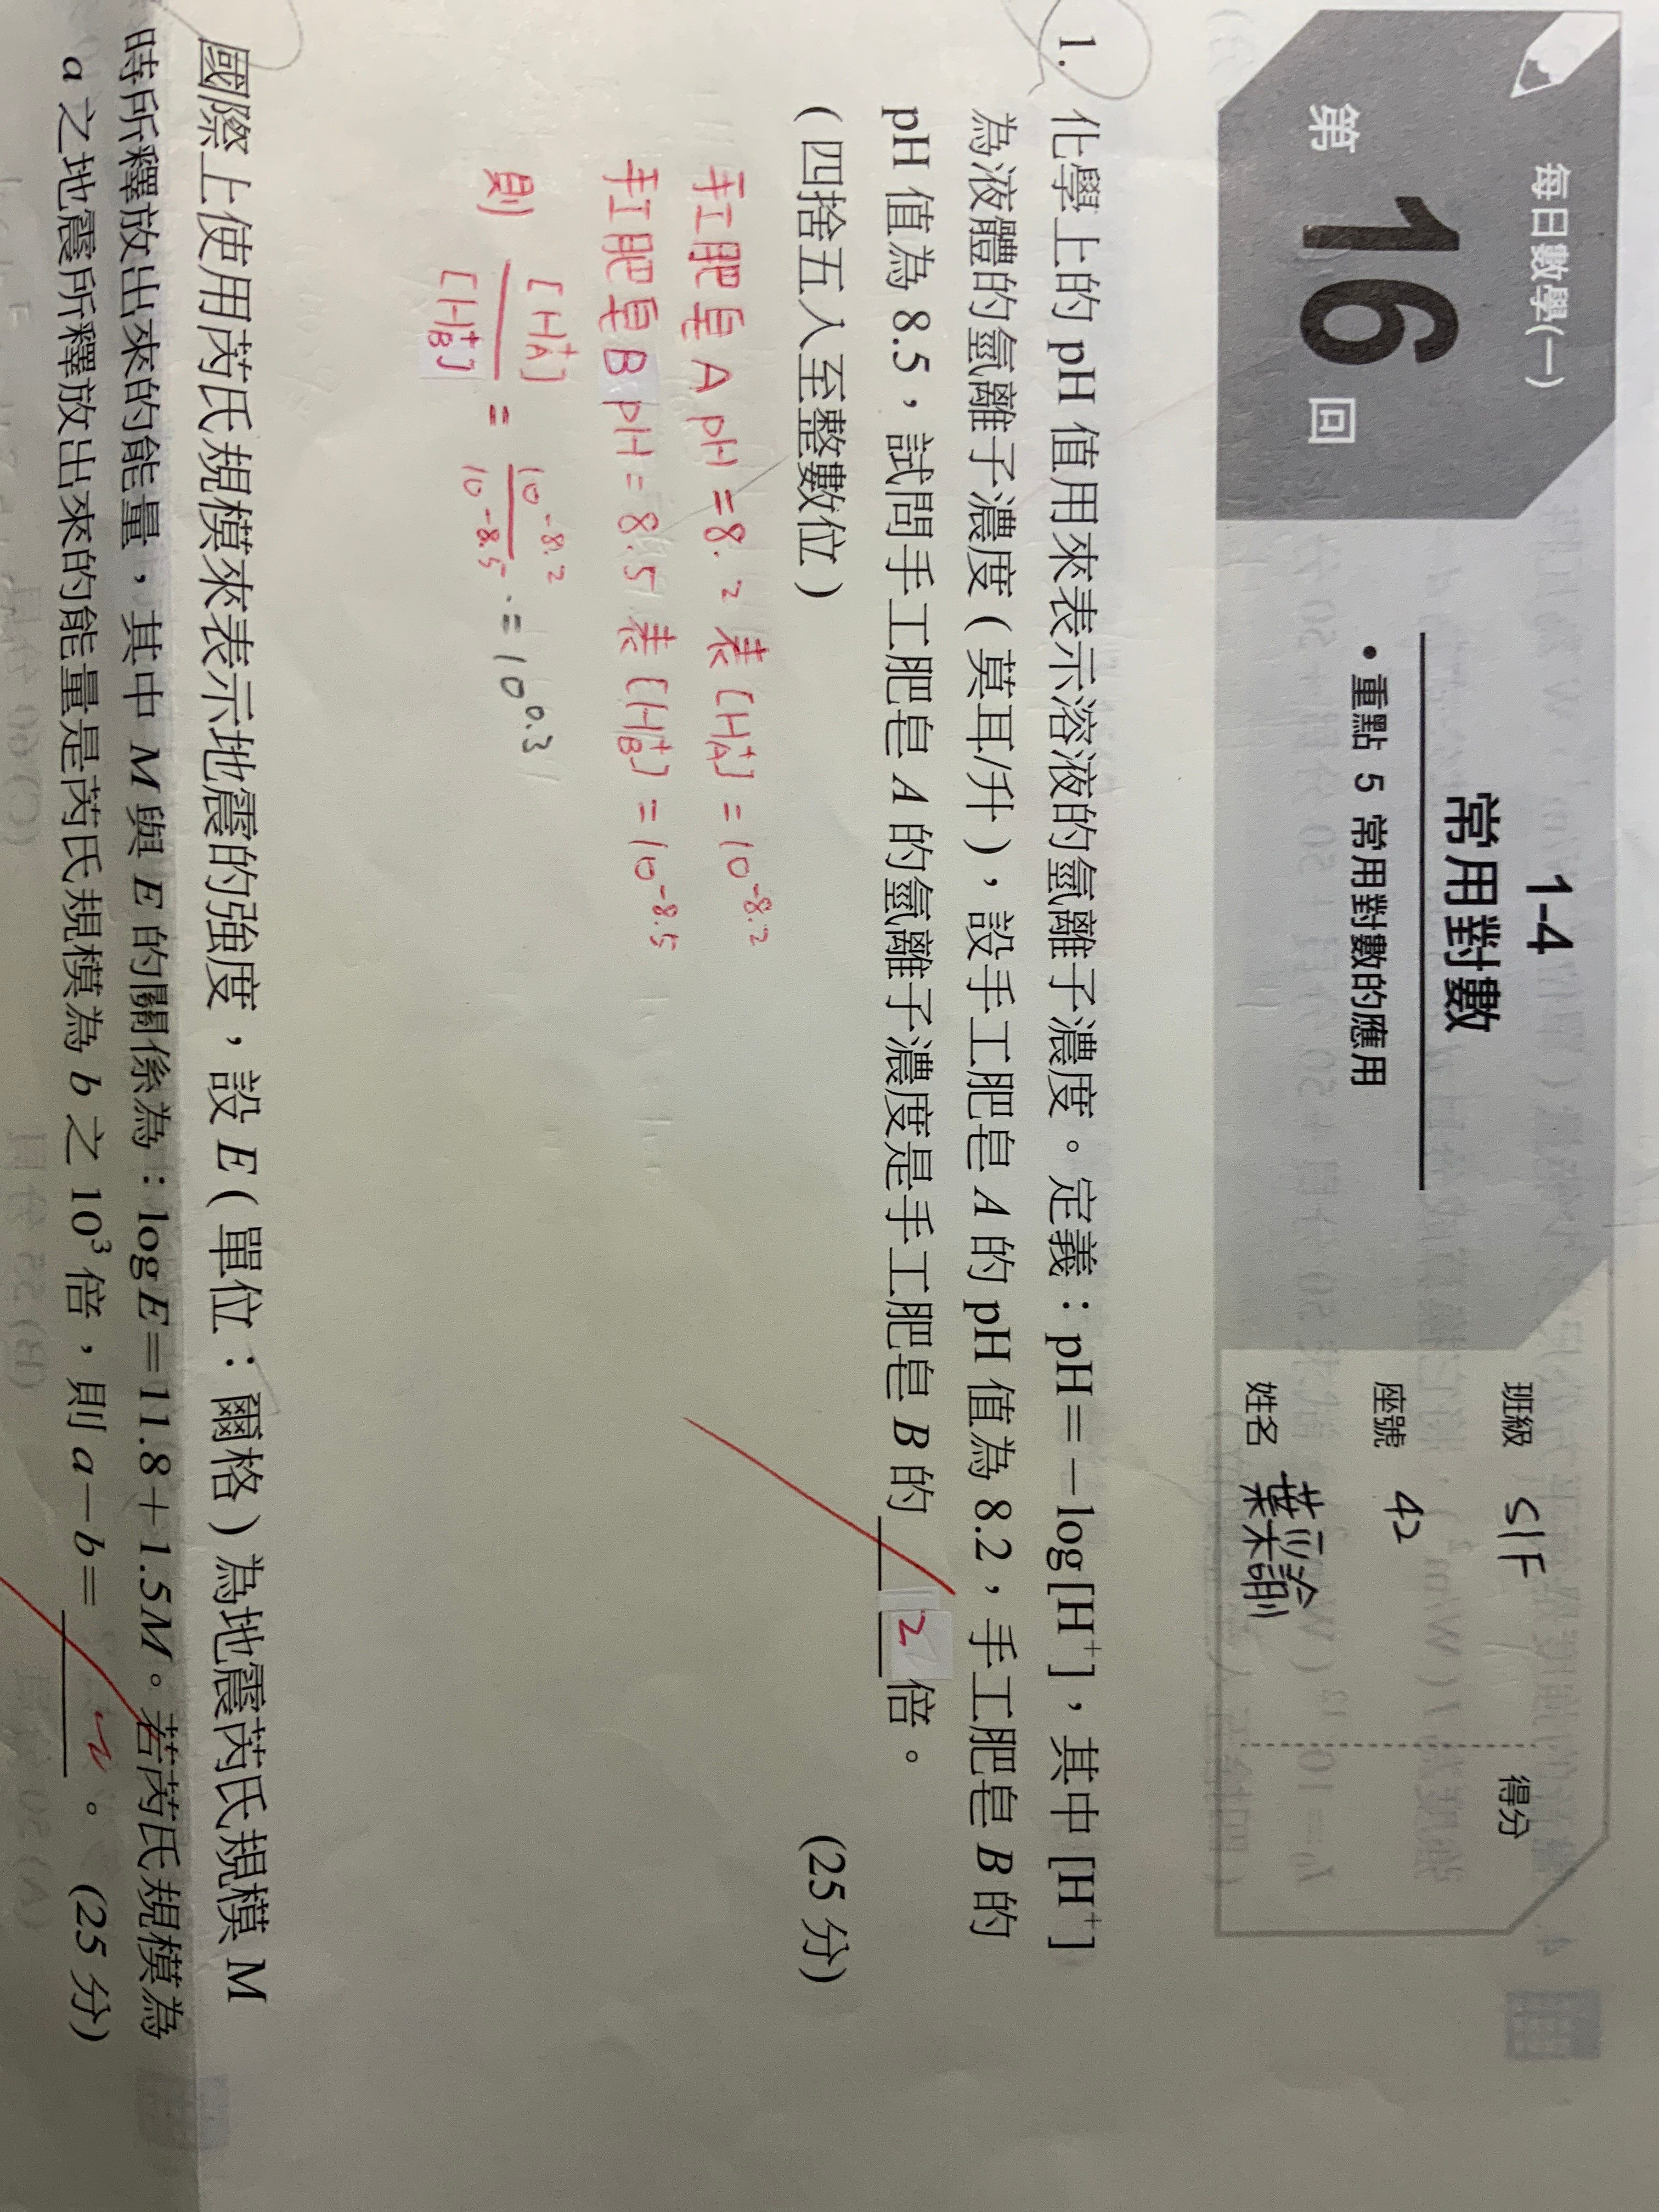 每日數學(一)
第 16 回
1-4
常用對數
• 重點 5 常用對數的應用
班級 S1F
座號 42
姓名
得分
1. 化學上的 pH 值用來表示溶液的氫離子濃度。定義：pH=-log[H⁺]，其中 [H⁺]
為液體的氫離子濃度(莫耳/升)，設手工肥皂 A 的 pH 值為 8.2，手工肥皂 B 的
pH 值為 8.5，試問手工肥皂 A 的氫離子濃度是手工肥皂 B 的 2 倍。
(四捨五入至整數位) (25 分)
手工肥皂 A pH = 8.2 表 [H⁺A] = 10^-8.2
手工肥皂 B pH = 8.5 表 [H⁺B] = 10^-8.5
則 [H⁺A]/[H⁺B] = 10^-8.2/10^-8.5 = 10^0.3
國際上使用芮氏規模來表示地震的強度，設 E(單位：爾格)為地震芮氏規模 M
時所釋放出來的能量，其中 M 與 E 的關係為：log E=11.8+1.5M。若芮氏規模為
a 之地震所釋放出來的能量是芮氏規模為 b 之 10³ 倍，則 a-b= 2 。 (25 分)